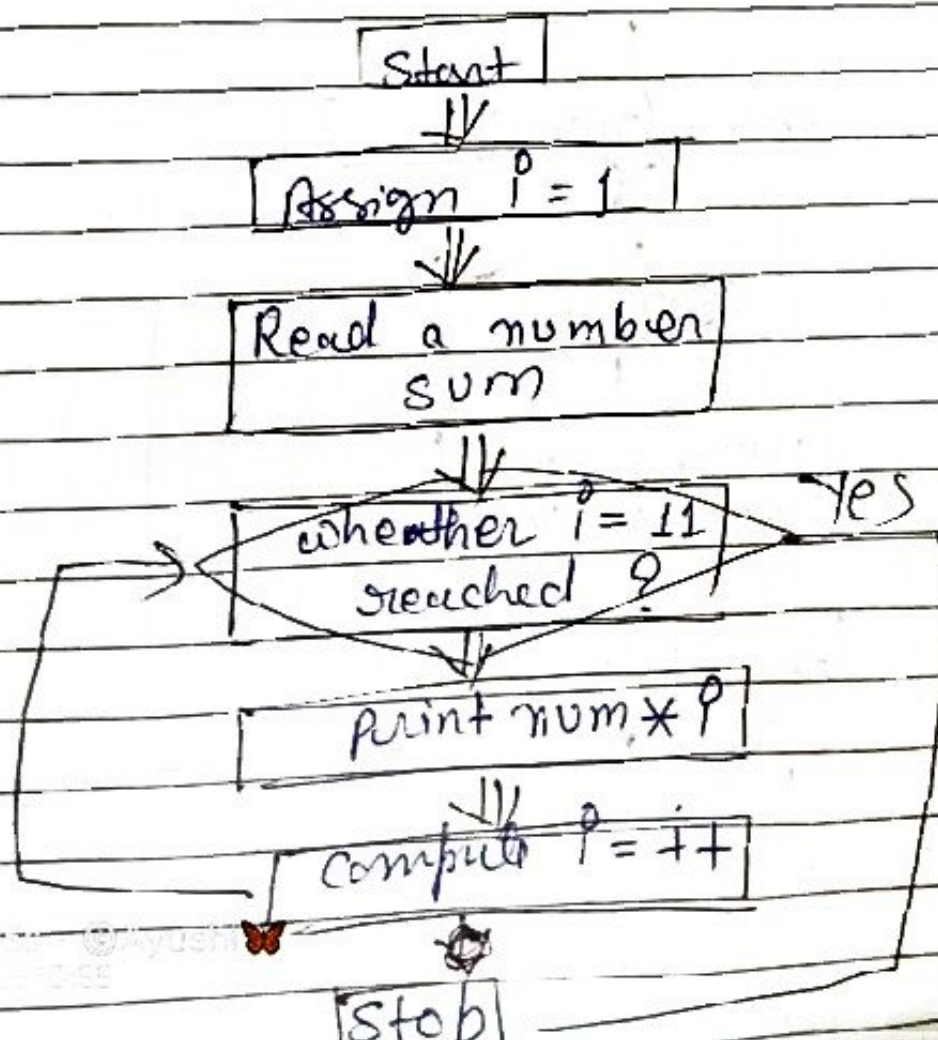 Start
Assign i = 1
Read a number
sum
Yes
wheather i = 11
reached ?
print num * i
compute i = i++
Stop